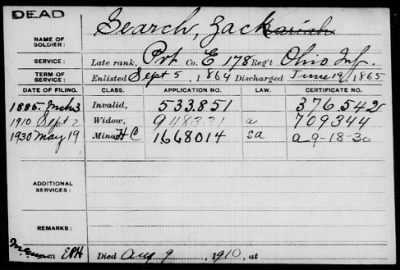 DEAD
NAME OF SOLDIER: Search, Zachariah
SERVICE: Late rank, Pvt Co. E 178 Reg't Ohio Inf.
TERM OF SERVICE: Enlisted Sept 5, 1864 Discharged June 19, 1865
DATE OF FILING. CLASS. APPLICATION NO. LAW. CERTIFICATE NO.
1885 Mch 3 Invalid, 533.851 376.542
1910 Sept 2 Widow, a 709344
1930 May 19 Minor H C 1668014 sa a 9-18-30
ADDITIONAL SERVICES:
REMARKS:
Died Aug 9, 1910, at